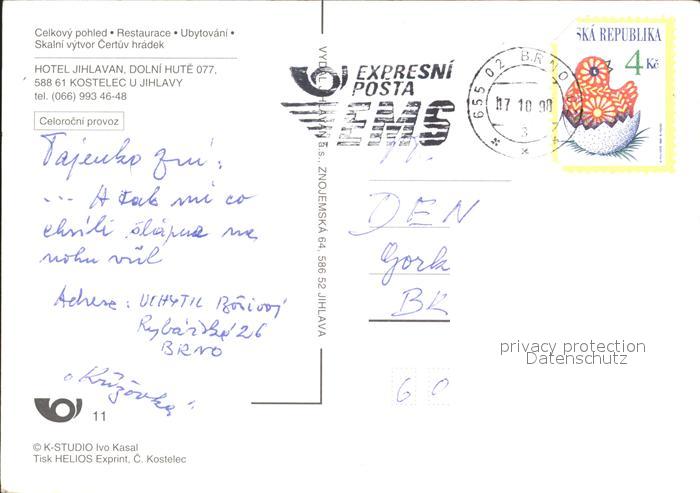 Celkový pohled • Restaurace • Ubytování •
Skalní výtvor Čertův hrádek
HOTEL JIHLAVAN, DOLNÍ HUTĚ 077,
588 61 KOSTELEC U JIHLAVY
tel. (066) 993 46-48
Celoroční provoz
Tajenko zní:
... A tak mi co
chvíli šlápne na
nohu vůl
Adresa: UCHYTIL Bořivoj
Rybářská 26
BRNO
"Křížovka"
11
© K-STUDIO Ivo Kasal
Tisk HELIOS Exprint, Č. Kostelec
ZNOJEMSKÁ 64, 586 52 JIHLAVA
EXPRESNÍ
POŠTA
EMS
655 02 BRNO
07 10 98
3
SKÁ REPUBLIKA
4 Kč
DEN
Gork
BR
60
privacy protection
Datenschutz